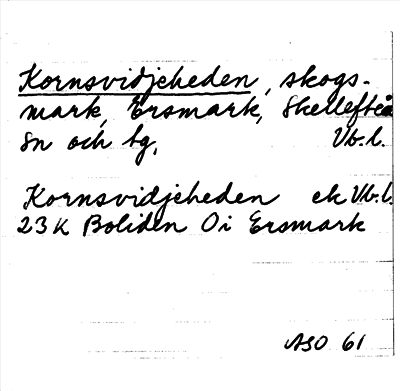 Kornsvidjeheden, skogs-
mark, Ersmark, Skellefteå
sn och bg, Vb.l.
Kornsvidjeheden ek Vb.l.
23K Boliden 0i Ersmark
ASO 61